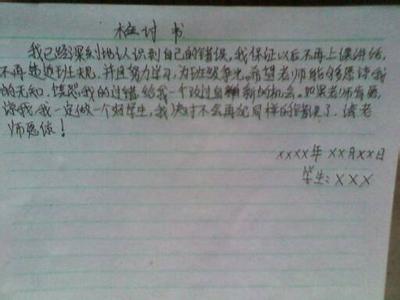 检讨书
我已经深刻地认识到自己的错误，我保证以后不再上课讲话，
不再违犯班规，并且努力学习，为班级争光。希望老师能够原谅我
的无知，饶恕我的过错给我一个改过自新的机会。如果老师肯
谅我，我一定做一个好学生，我决对不会再犯同样的错误了，请老
师恩信！
xxxx年xx月xx日
学生：XXX